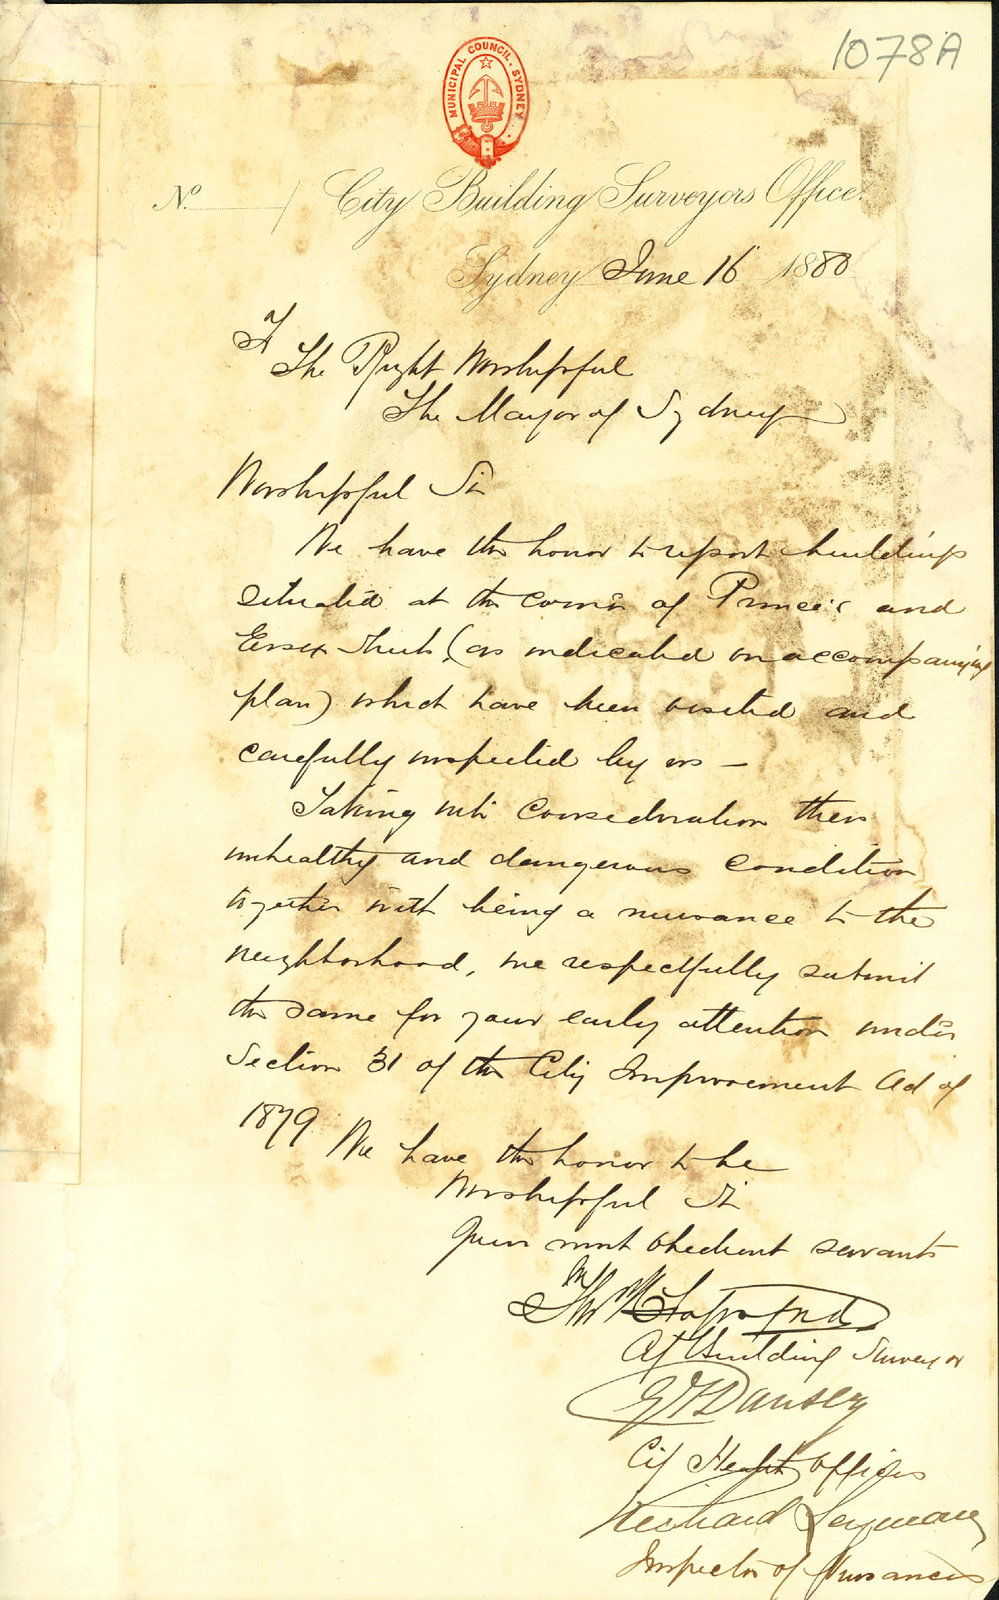 1078A
MUNICIPAL COUNCIL. SYDNEY.
No. / City Building Surveyors Office.
Sydney June 16 1880
To
The Right Worshipful
The Mayor of Sydney
Worshipful Sir
We have the honor to report buildings
situated at the corner of Princes and
Essex Streets (as indicated on accompanying
plan) which have been visited and
carefully inspected by us —
Taking into consideration their
unhealthy and dangerous condition
together with being a nuisance to the
neighborhood, we respectfully submit
the same for your early attention under
Section 31 of the City Improvement Act of
1879. We have the honor to be
Worshipful Sir
Your most obedient servants
City Building Surveyor
G F Dansey
City Health Officer
Richard Seymour
Inspector of Nuisances